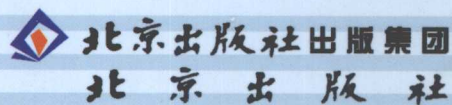 北京出版社出版集团
北京出版社